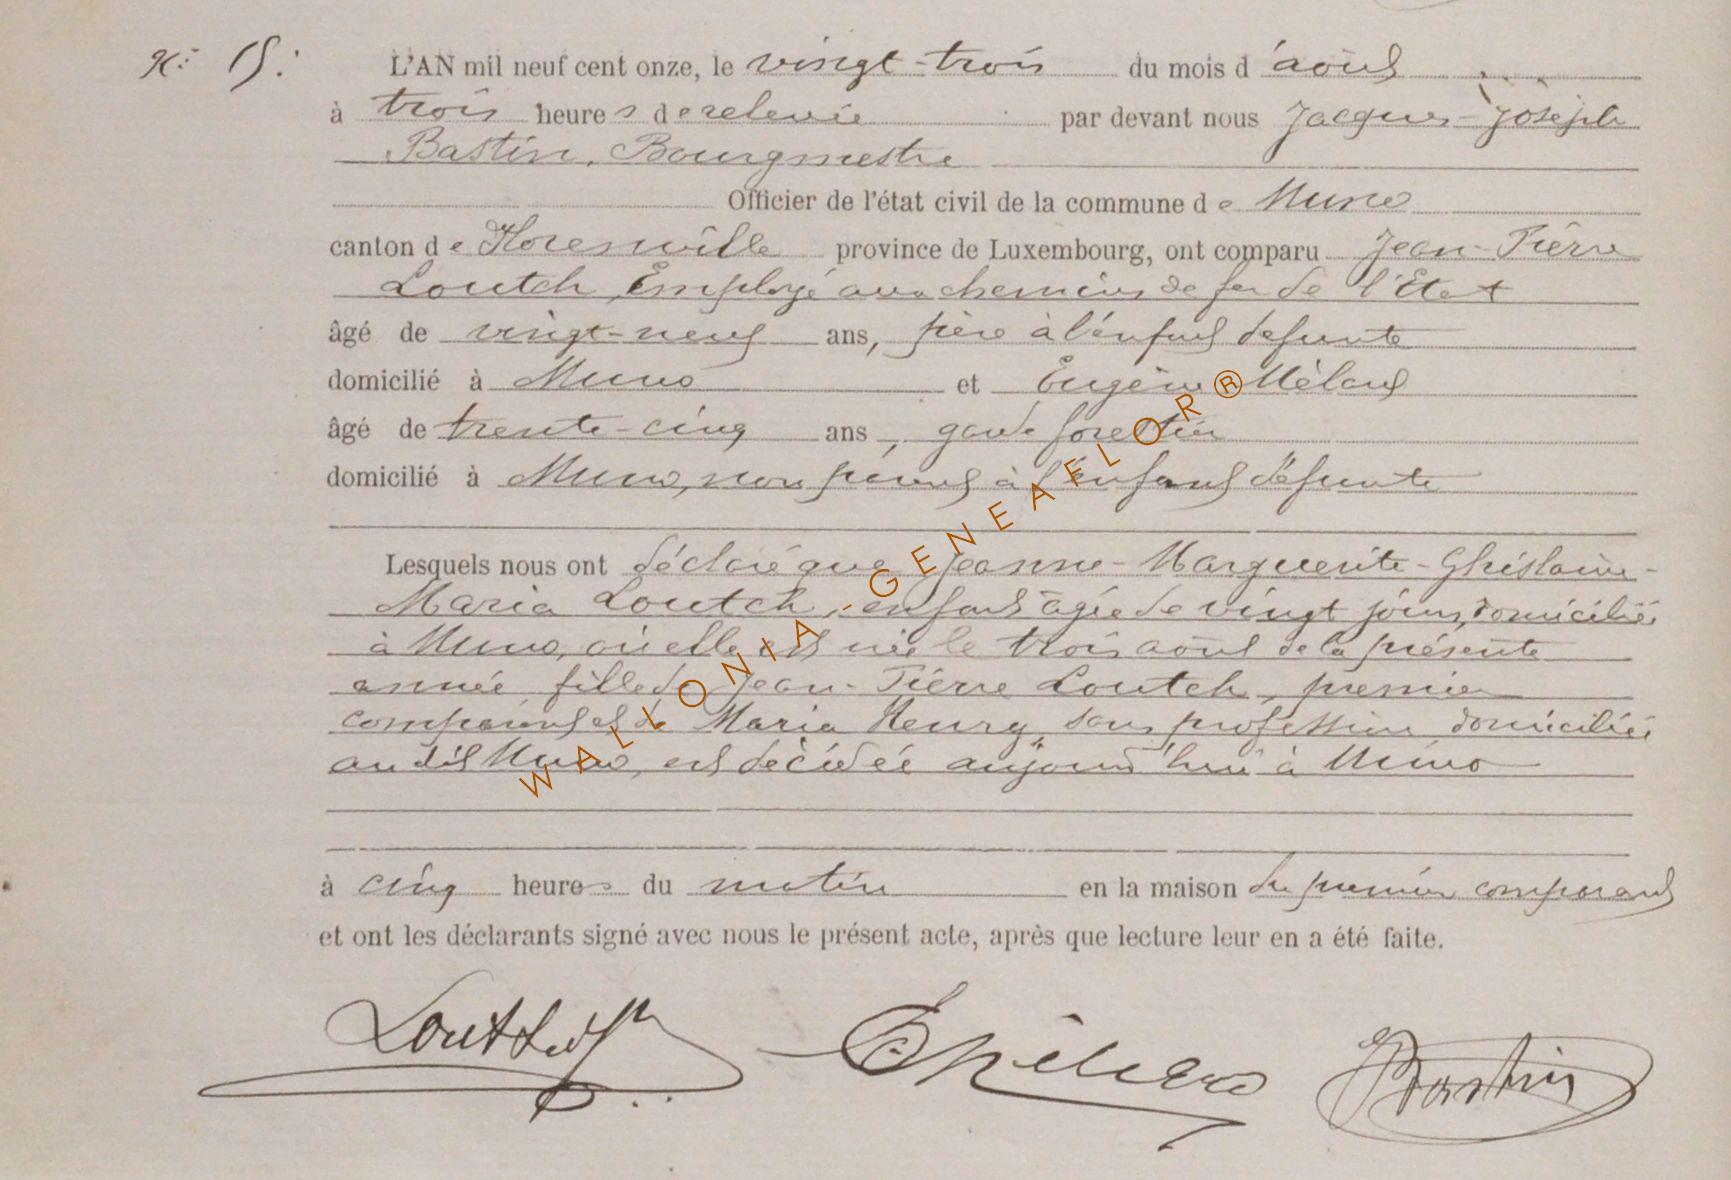 N° 15.
L'AN mil neuf cent onze, le vingt-trois du mois d'août
à trois heures de relevée par devant nous Jacques-Joseph
Bastin, Bourgmestre
Officier de l'état civil de la commune de Muno
canton de Florenville province de Luxembourg, ont comparu Jean-Pierre
Loutch, Employé aux chemins de fer de l'Etat
âgé de vingt-neuf ans, père à l'enfant défunte
domicilié à Muno et Eugène
âgé de trente-cinq ans, garde forestier
domicilié à Muno, non parent à l'enfant défunte
Lesquels nous ont déclaré que Jeanne-Marguerite-Ghislaine-
Maria Loutch, enfant âgée de vingt jours, domiciliée
à Muno, où elle est née le trois août de la présente
année fille de Jean-Pierre Loutch, premier
comparant et de Maria Henry, sans profession domiciliée
au dit Muno, est décédée aujourd'hui à Muno
à cinq heures du matin en la maison du premier comparant
et ont les déclarants signé avec nous le présent acte, après que lecture leur en a été faite.
Bastin
WALLONIA-GENEAFLOR®